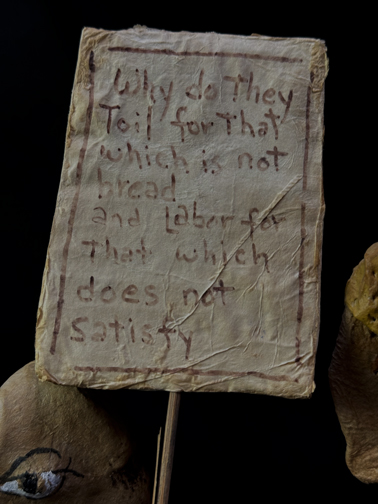 Why do They
Toil for That
which is not
bread
and Labor for
That which
does not
satisfy